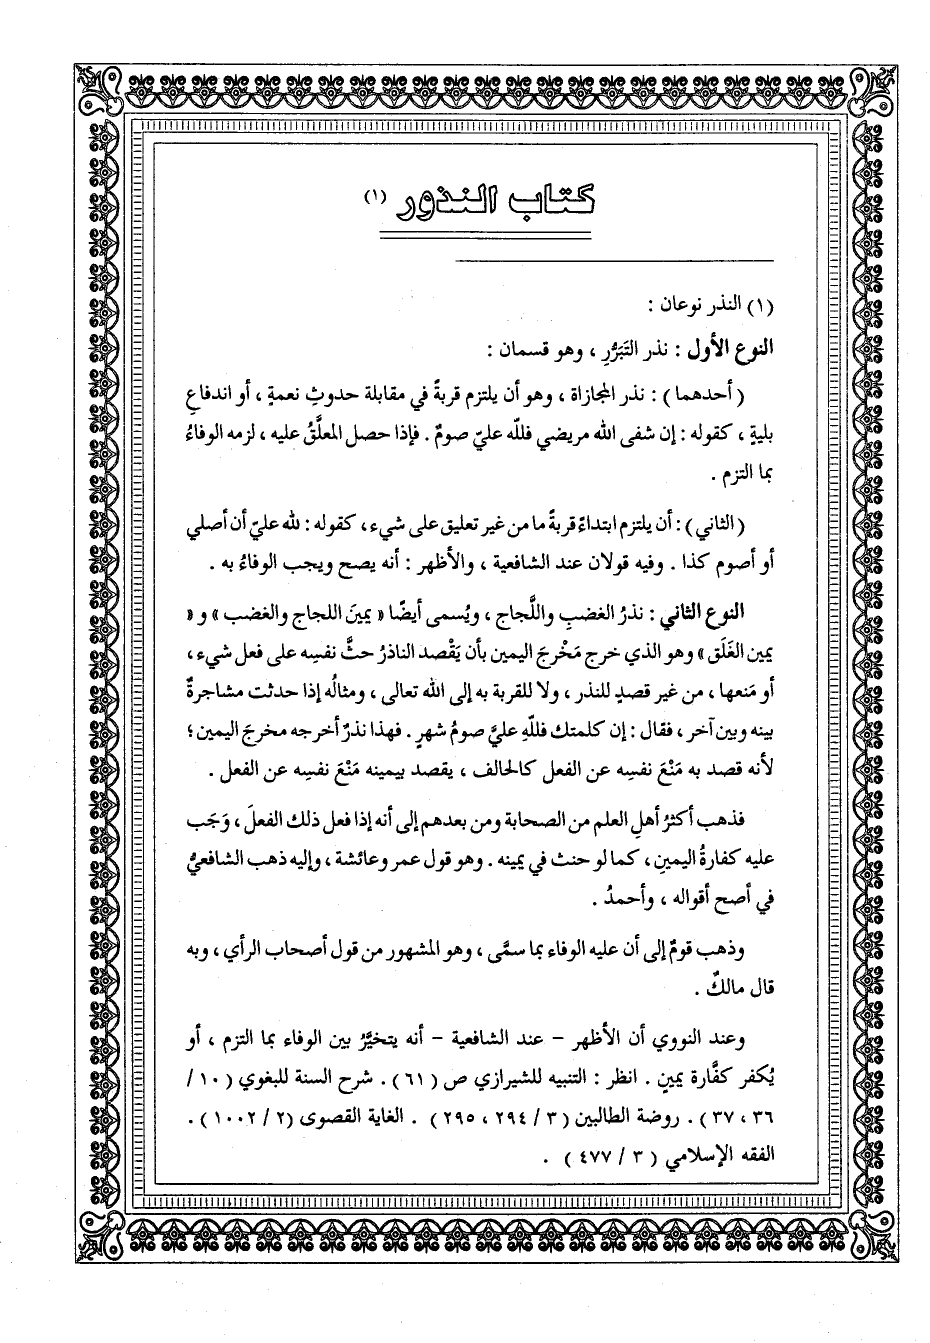 كتاب النذور (١)
(١) النذر نوعان :
النوع الأول : نذر التَبَرُّرِ ، وهو قسمان :
(أحدهما) : نذر المجازاة ، وهو أن يلتزم قربةً في مقابلة حدوثِ نعمةٍ ، أو اندفاعِ
بليةٍ ، كقوله : إن شفى الله مريضي فللّه عليّ صومٌ . فإذا حصل المعلَّقُ عليه ، لزمه الوفاءُ
بما التزم .
(الثاني) : أن يلتزم ابتداءً قربةً ما من غير تعليق على شيء ، كقوله : لله عليّ أن أصلي
أو أصوم كذا . وفيه قولان عند الشافعية ، والأظهر : أنه يصح ويجب الوفاءُ به .
النوع الثاني : نذرُ الغضبِ واللَّجاج ، ويُسمى أيضًا « يمينَ اللجاج والغضب » و «
يمين الغَلَق » وهو الذي خرج مَخْرجَ اليمين بأن يَقْصد الناذرُ حثَّ نفسِه على فعل شيء ،
أو مَنعها ، من غير قصدٍ للنذر ، ولا للقربة به إلى الله تعالى ، ومثالُه إذا حدثت مشاجرةٌ
بينه وبين آخر ، فقال : إن كلمتك فللّهِ عليَّ صومُ شهرٍ . فهذا نذرٌ أخرجه مخرجَ اليمين ؛
لأنه قصد به مَنْعَ نفسِه عن الفعل كالحالف ، يقصد بيمينه مَنْعَ نفسِه عن الفعل .
فذهب أكثرُ أهلِ العلم من الصحابة ومن بعدهم إلى أنه إذا فعل ذلك الفعلَ ، وَجَب
عليه كفارةُ اليمينِ ، كما لو حنث في يمينه . وهو قول عمر وعائشة ، وإليه ذهب الشافعيُّ
في أصح أقواله ، وأحمدُ .
وذهب قومٌ إلى أن عليه الوفاء بما سمَّى ، وهو المشهور من قول أصحاب الرأي ، وبه
قال مالكٌ .
وعند النووي أن الأظهر – عند الشافعية – أنه يتخيَّرُ بين الوفاء بما التزم ، أو
يُكفر كفَّارة يمين . انظر : التنبيه للشيرازي ص (٦١) . شرح السنة للبغوي (١٠ /
٣٦ ، ٣٧) . روضة الطالبين (٣ / ٢٩٤ ، ٢٩٥ ) . الغاية القصوى (٢ / ١٠٠٢) .
الفقه الإسلامي ( ٣ / ٤٧٧ ) .